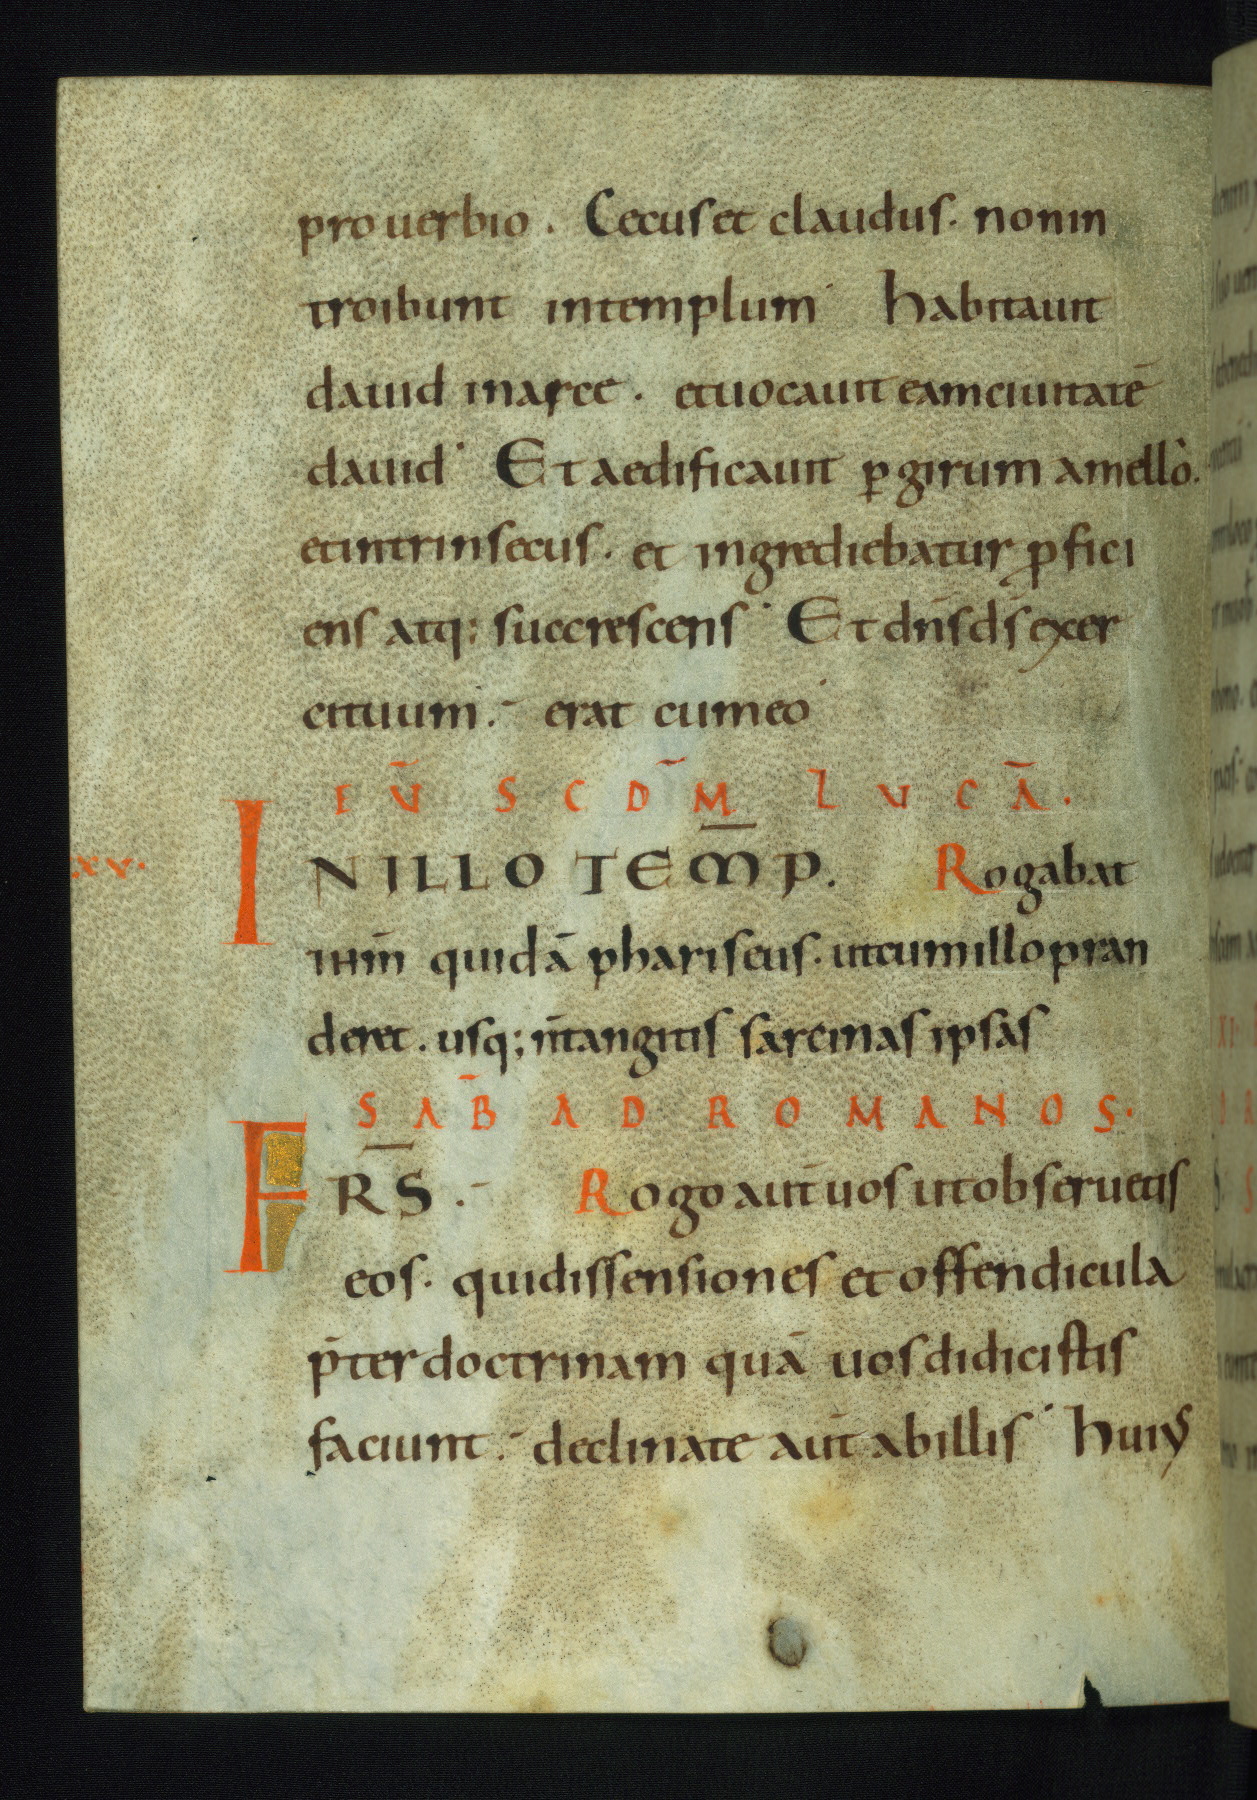 prouerbio. Cecus et claudus. non in
troibunt in templum. Habitauit
dauid in arce. et uocauit eam ciuitatē
dauid. Et aedificauit ꝑ girum a mello.
et intrinsecus. et ingrediebatur ꝓfici
ens atq: succrescens. Et dn̄s ds̄ exer
cituum. erat cum eo
EV̄ SCDM̄ LVCĀ.
XV.
INILLO TEM̄P. Rogabat
ihm̄ quidā phariseus. ut cum illo pran
deret. usq; n̄ tangitis sarcinas ipsas
SAB̄ AD ROMANOS.
FR̄S. Rogo aūt uos ut obseruetis
eos. qui dissensiones et offendicula
p̄ter doctrinam quā uos didicistis
faciunt. declinate aūt ab illis. Huiꝰ